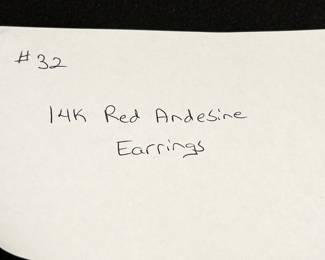 #32
14K Red Andesine
Earrings